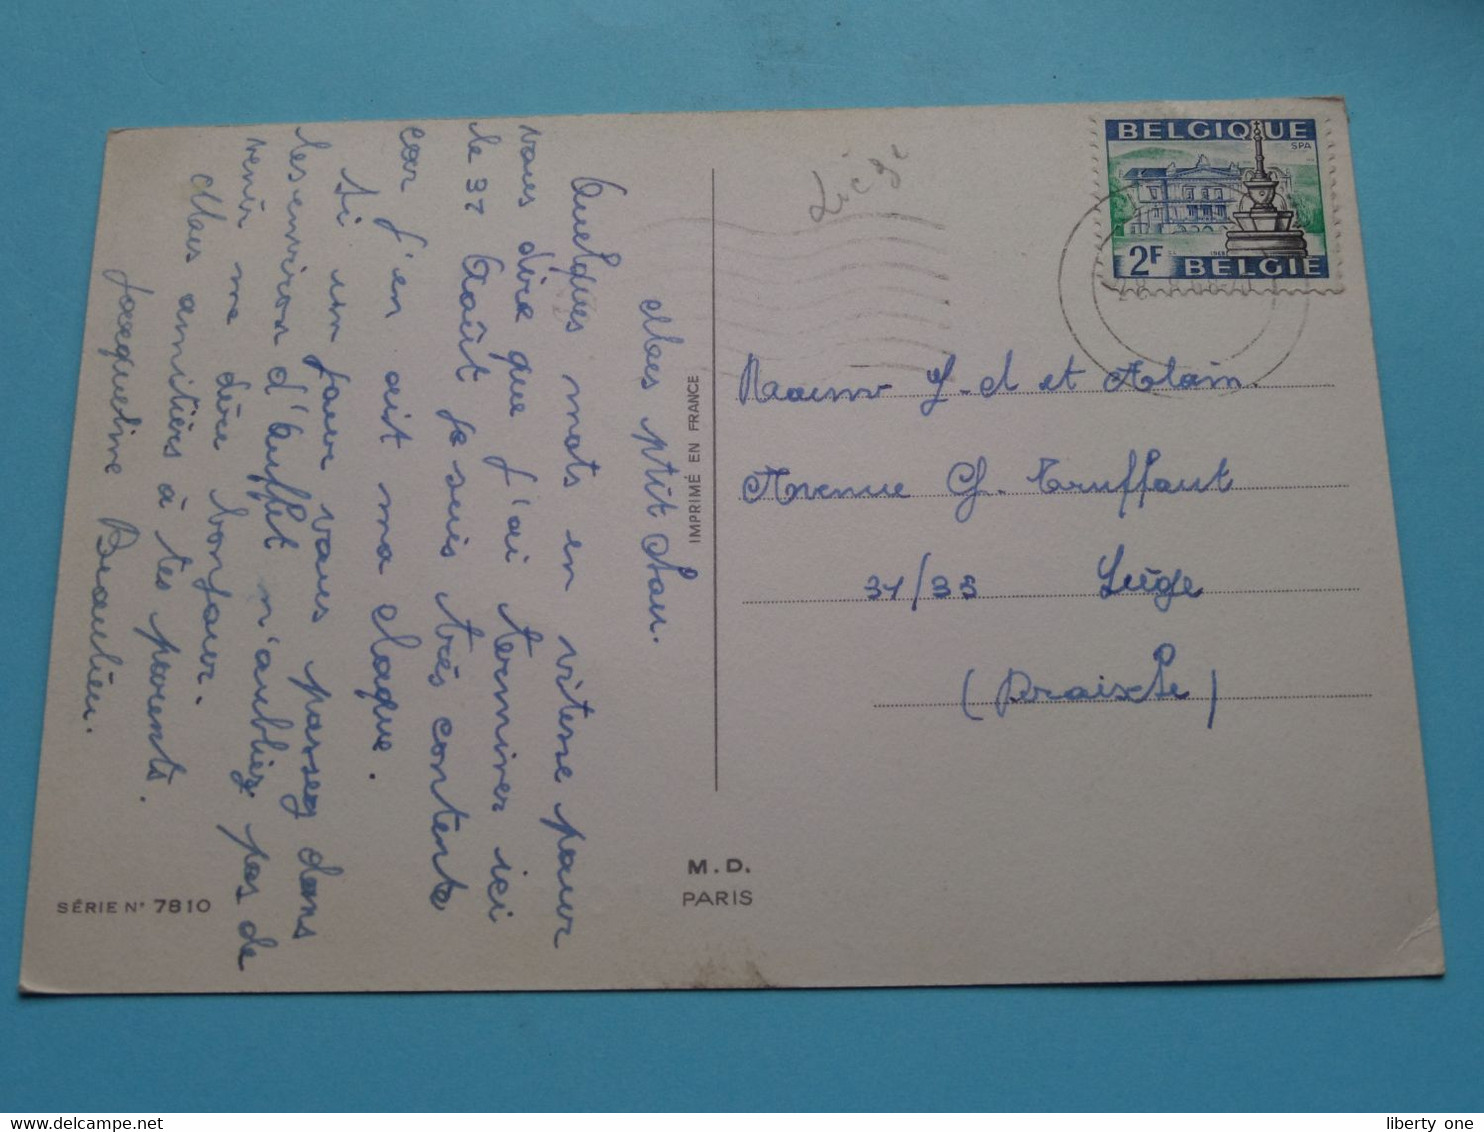 Mes ptit Lou.
Quelques mots en vitesse pour
vous dire que j'ai terminer ici
le 31 Août je suis très contente
car j'en ait ma claque.
Si un jour vous passez dans
les environ d'Auffet n'oubliez pas de
venir me dire bonjour.
Mes amitiers à tes parents.
Jacqueline Beaulieu.
SÉRIE N° 7810
IMPRIMÉ EN FRANCE
M.D.
PARIS
Liège
BELGIQUE
SPA
2F
BELGIE
J-L et Alain.
Avenue G. Truffaut
31/33 Liège
(Droixhe)
liberty one